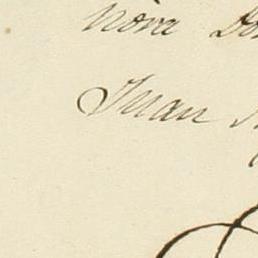 nora Do
Juan